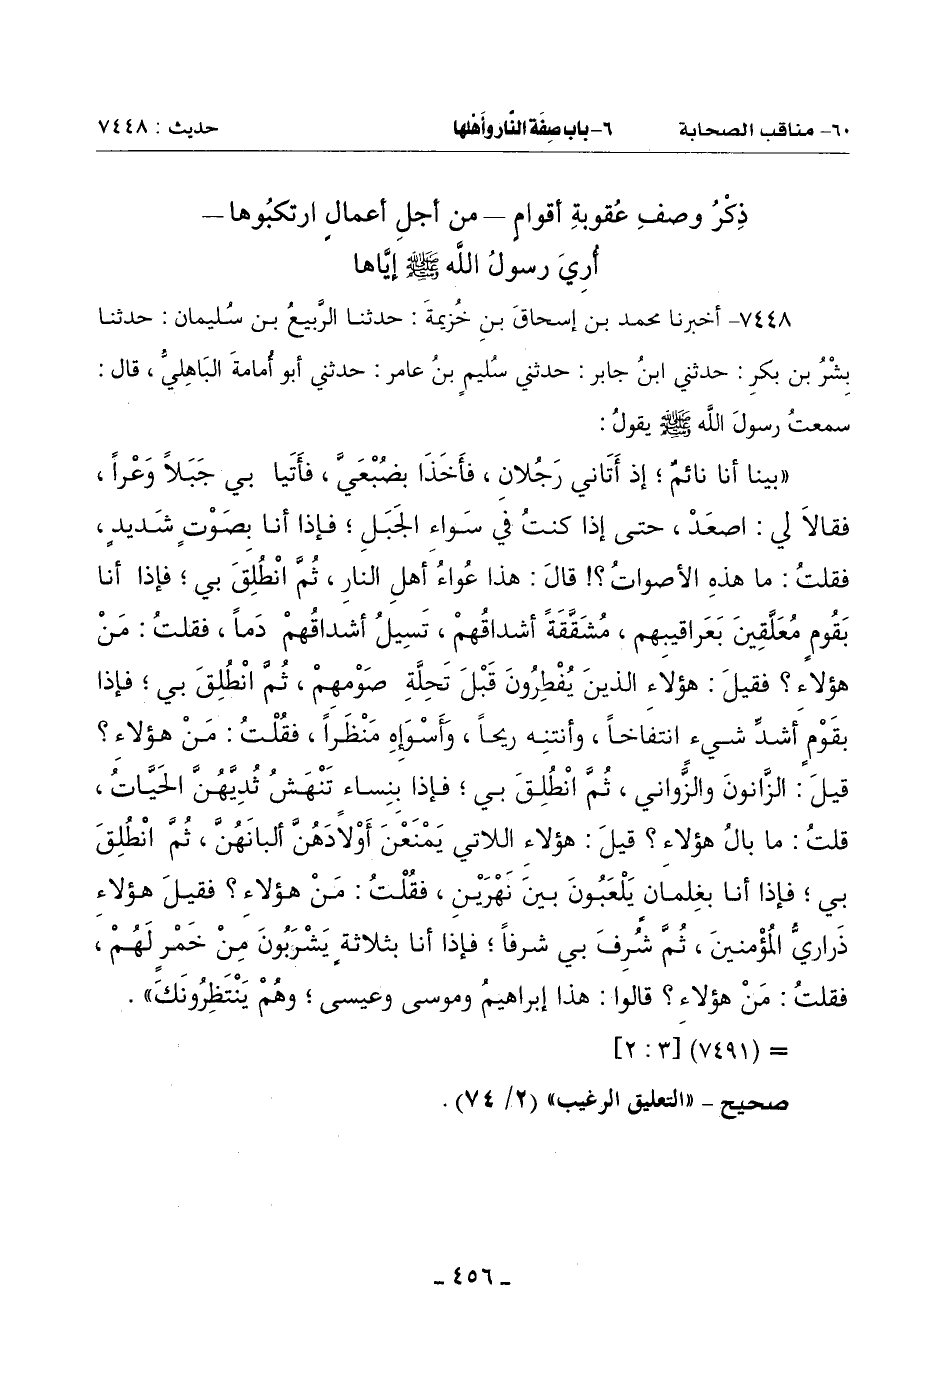 ٦٠- مناقب الصحابة ٦- باب صِفَة النَّار وأَهْلها حديث : ٧٤٤٨
ذِكْرُ وصفِ عُقوبةِ أقوامٍ — من أجلِ أعمالٍ ارتكبُوها —
أُرِيَ رسولُ اللَّه ﷺ إيَّاها
٧٤٤٨- أخبرنا محمد بن إسحاقَ بنِ خُزيمةَ : حدثنا الرَّبيعُ بن سُليمان : حدثنا
بِشْرُ بن بكرٍ : حدثني ابنُ جابر : حدثني سُليم بنُ عامر : حدثني أبو أُمامةَ البَاهليُّ ، قال :
سمعتُ رسولَ اللَّه ﷺ يقولُ :
«بينا أنا نائمٌ ؛ إذ أتَاني رَجُلان ، فأَخَذَا بضُبْعَيَّ ، فأَتَيا بي جَبَلاً وَعْراً ،
فقالاَ لي : اصعَدْ ، حتى إذا كنتُ في سَواء الجَبَل ؛ فإذا أنا بصَوْتٍ شَديدٍ ،
فقلتُ : ما هذهِ الأصواتُ ؟! قالَ : هذا عُواءُ أهلِ النارِ ، ثُمَّ انْطُلِقَ بي ؛ فإذا أنا
بقُومٍ مُعَلَّقِينَ بَعَراقيبهم ، مُشَقَّقَةً أشداقُهمْ ، تَسِيلُ أشداقُهمْ دَماً ، فقلتُ : مَنْ
هؤلاءِ ؟ فقيلَ : هؤلاء الذينَ يُفْطِرُونَ قَبْلَ تَحِلَّةِ صَوْمهمْ ، ثُمَّ انْطُلِقَ بي ؛ فإذا
بقَوْمٍ أشدِّ شيءٍ انتفاخاً ، وأنتنِه ريحاً ، وَأَسْوَإِه مَنْظَراً ، فقُلْتُ : مَنْ هؤلاءِ ؟
قيلَ : الزَّانونَ والزَّواني ، ثُمَّ انْطُلِقَ بي ؛ فإذا بنِساءٍ تَنْهَشُ ثُدِيَّهُنَّ الحَيَّاتُ ،
قلتُ : ما بالُ هؤلاءِ ؟ قيلَ : هؤلاء اللاتي يَمْنَعْنَ أَوْلادَهُنَّ ألبانَهُنَّ ، ثُمَّ انْطُلِقَ
بي ؛ فإذا أنا بغلمانٍ يَلْعَبُونَ بينَ نَهْرَيْنِ ، فقُلْتُ : مَنْ هؤلاءِ ؟ فقيلَ هؤلاءِ
ذَراريُّ المُؤْمنينَ ، ثُمَّ شُرِفَ بي شرفاً ؛ فإذا أنا بثلاثةٍ يَشْرَبُونَ مِنْ خَمْرٍ لَهُمْ ،
فقلتُ : مَنْ هؤلاءِ ؟ قالوا : هذا إبراهيمُ وموسى وعيسى ؛ وهُمْ يَنْتَظِرُونَكَ» .
= (٧٤٩١) [٣ : ٢]
صحيح - «التعليق الرغيب» (٢/ ٧٤) .
- ٤٥٦ -